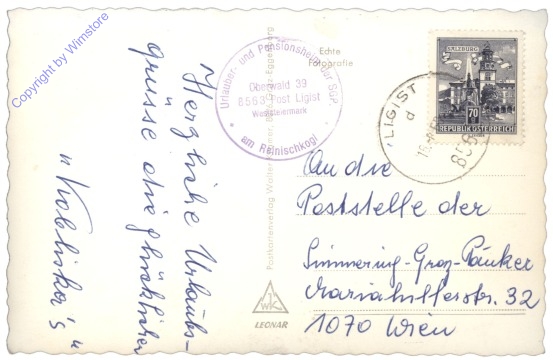 Copyright by Wimstore
Herzliche Urlaubs-
grüsse die glücklichen
"Kobliska's"
Urlauber- und Pensionsheim der SGP
Oberwald 39
8563 Post Ligist
Weststeiermark
am Reinischkogl
Echte
Fotografie
Postkartenverlag Walter
Graz-Eggenberg
WK
LEONAR
SALZBURG
70
REPUBLIK ÖSTERREICH
LIGIST
d
An die
Poststelle der
Simmering-Graz-Pauker
Mariahilferstr. 32
1070 Wien